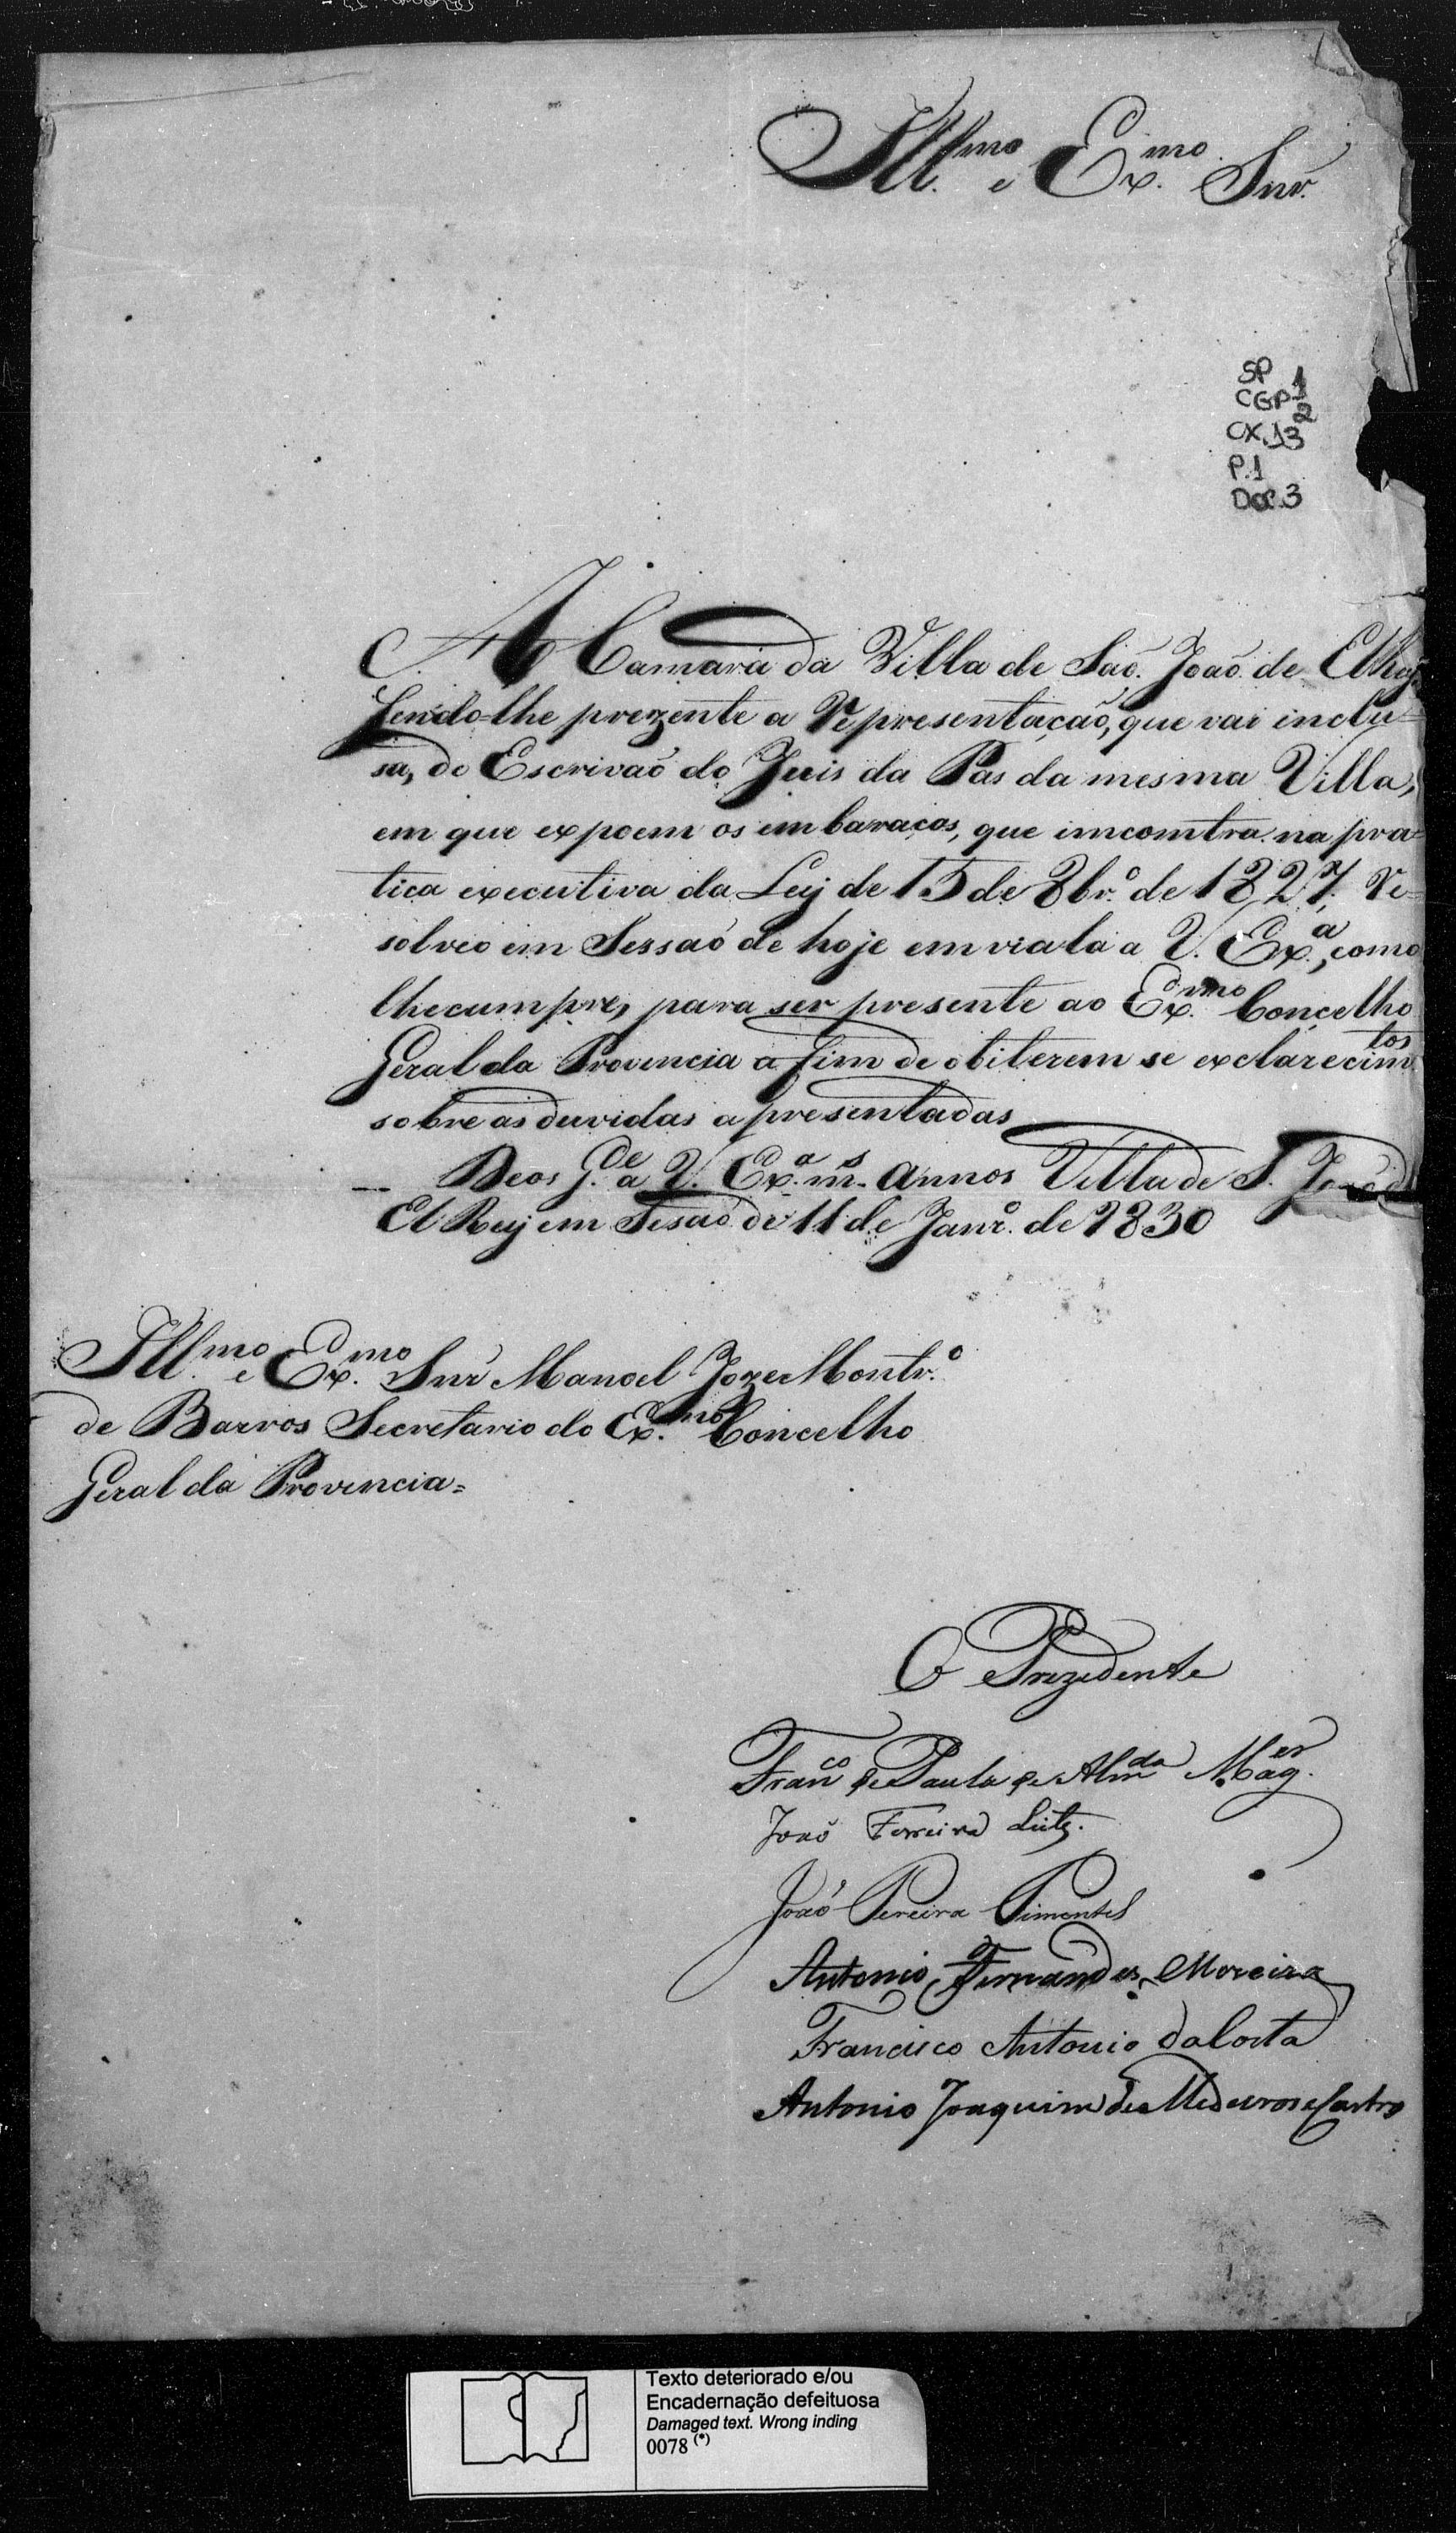 Ill.mo e Ex.mo Snr.
SP 1
CGP 1
2
CX.13
P.1
Doc.3
A Camara da Villa de São João de ElRey
sendo-lhe prezente a Representação, que vai inclu=
sa, do Escrivaõ do Juis da Pas da mesma Villa,
em que expoem os embaraços, que imcomtra na pra=
tica executiva da Ley de 15 de 8br.º de 1827, Re=
solveo em Sessaõ de hoje enviala a V. Ex.a, como
lhecumpre, para ser presente ao Ex.mo Conçelho
Geral da Provencia a fim de obiterem se exclarecim.tos
sobre as duvidas apresentadas
Deos G.de a V. Ex.a m.s annos Villa de S. João d
El Rey em Sesaõ de 11 de Janr.º de 1830
Ill.mo e Ex.mo Snr Manoel Joze Montr.º
de Barros Secretario do Ex.mo Concelho
Geral da Provencia=
O Prezidente
Fran.co de Paula de Alm.da Mag.es
João Ferreira Leite.
Joaõ Pereira Pimentel
Antonio Fernandes Moreira
Francisco Antonio da Costa
Antonio Joaquim de Medeiros e Castro
Texto deteriorado e/ou
Encadernação defeituosa
Damaged text. Wrong inding
0078 (*)